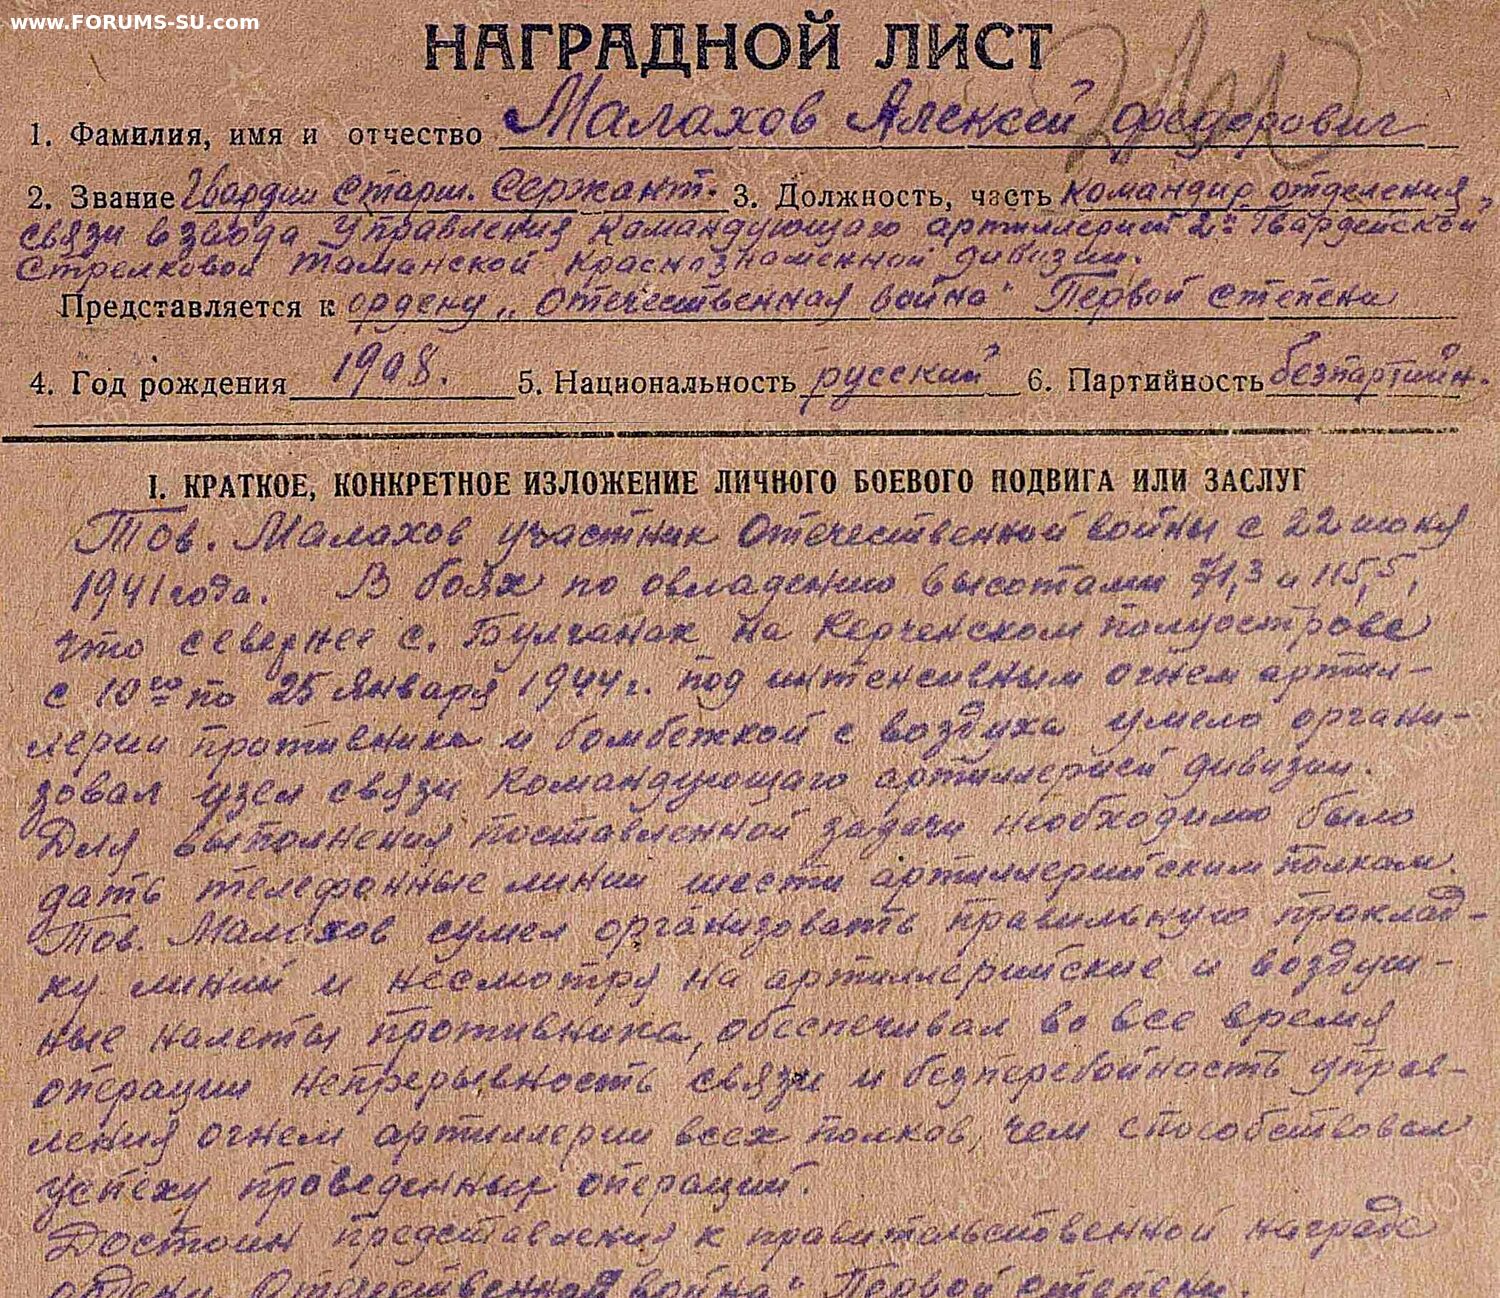 www.FORUMS-SU.com
НАГРАДНОЙ ЛИСТ
1. Фамилия, имя и отчество Малахов Алексей Федорович
2. Звание Гвардии Старш. Сержант. 3. Должность, часть Командир отделения
связи взвода Управления Командующего артиллерией 2й Гвардейской
Стрелковой Таманской Краснознаменной дивизии.
Представляется к ордену „Отечественная война" Первой степени
4. Год рождения 1908. 5. Национальность русский 6. Партийность безпартийн.
I. КРАТКОЕ, КОНКРЕТНОЕ ИЗЛОЖЕНИЕ ЛИЧНОГО БОЕВОГО ПОДВИГА ИЛИ ЗАСЛУГ
Тов. Малахов участник Отечественной войны с 22 июня
1941 года. В боях по овладению высотами 71,3 и 115,5,
что севернее с. Булганак на Керченском полуострове
с 10го по 25 января 1944 г. под интенсивным огнем артил-
лерии противника и бомбежкой с воздуха умело органи-
зовал узел связи Командующего артиллерией дивизии.
Для выполнения поставленной задачи необходимо было
дать телефонные линии шести артиллерийским полкам.
Тов. Малахов сумел организовать правильную проклад-
ку линий и несмотря на артиллерийские и воздуш-
ные налеты противника, обеспечивал во все время
операции непрерывность связи и безперебойность управ-
ления огнем артиллерии всех полков, чем способствовал
успеху проведенных операций.
Достоин представления к правительственной награде
ордену „Отечественная война" Первой степени.